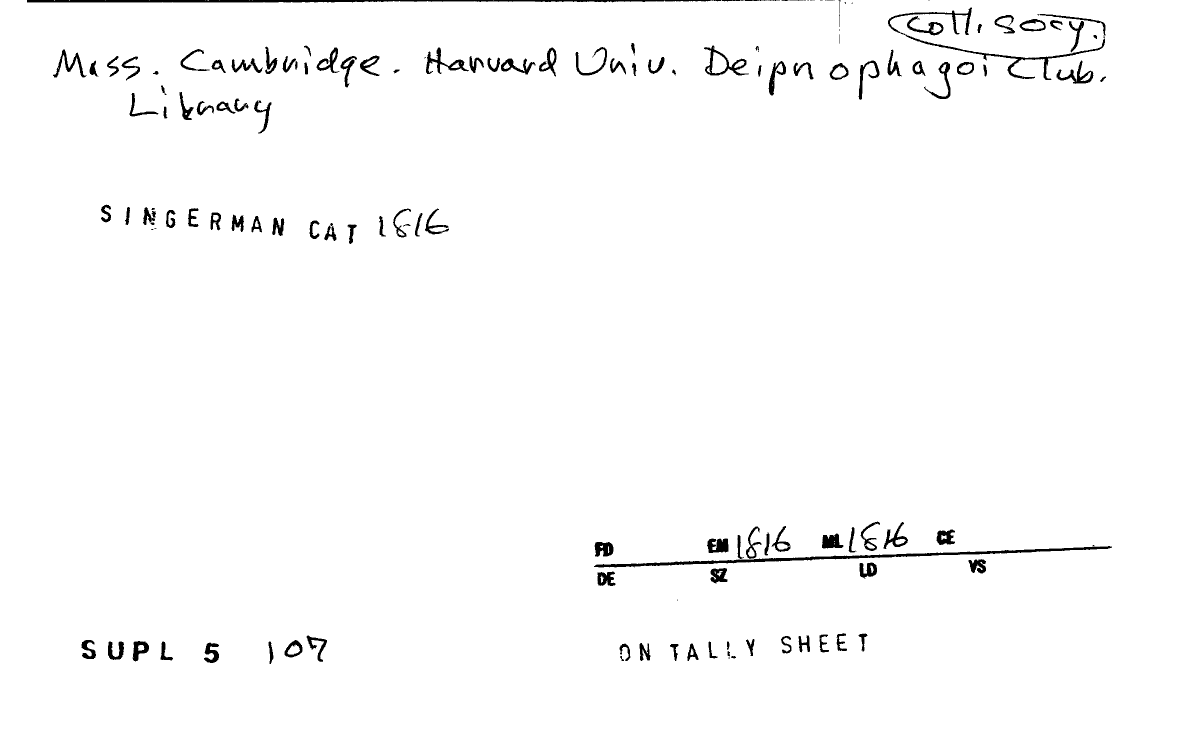 Coll. Socy.
Mass. Cambridge. Harvard Univ. Deipnophagoi Club.
Library
SINGERMAN CAT 1816
FD EM 1816 ML 1816 CE
DE SZ LD VS
SUPL 5 107
ON TALLY SHEET